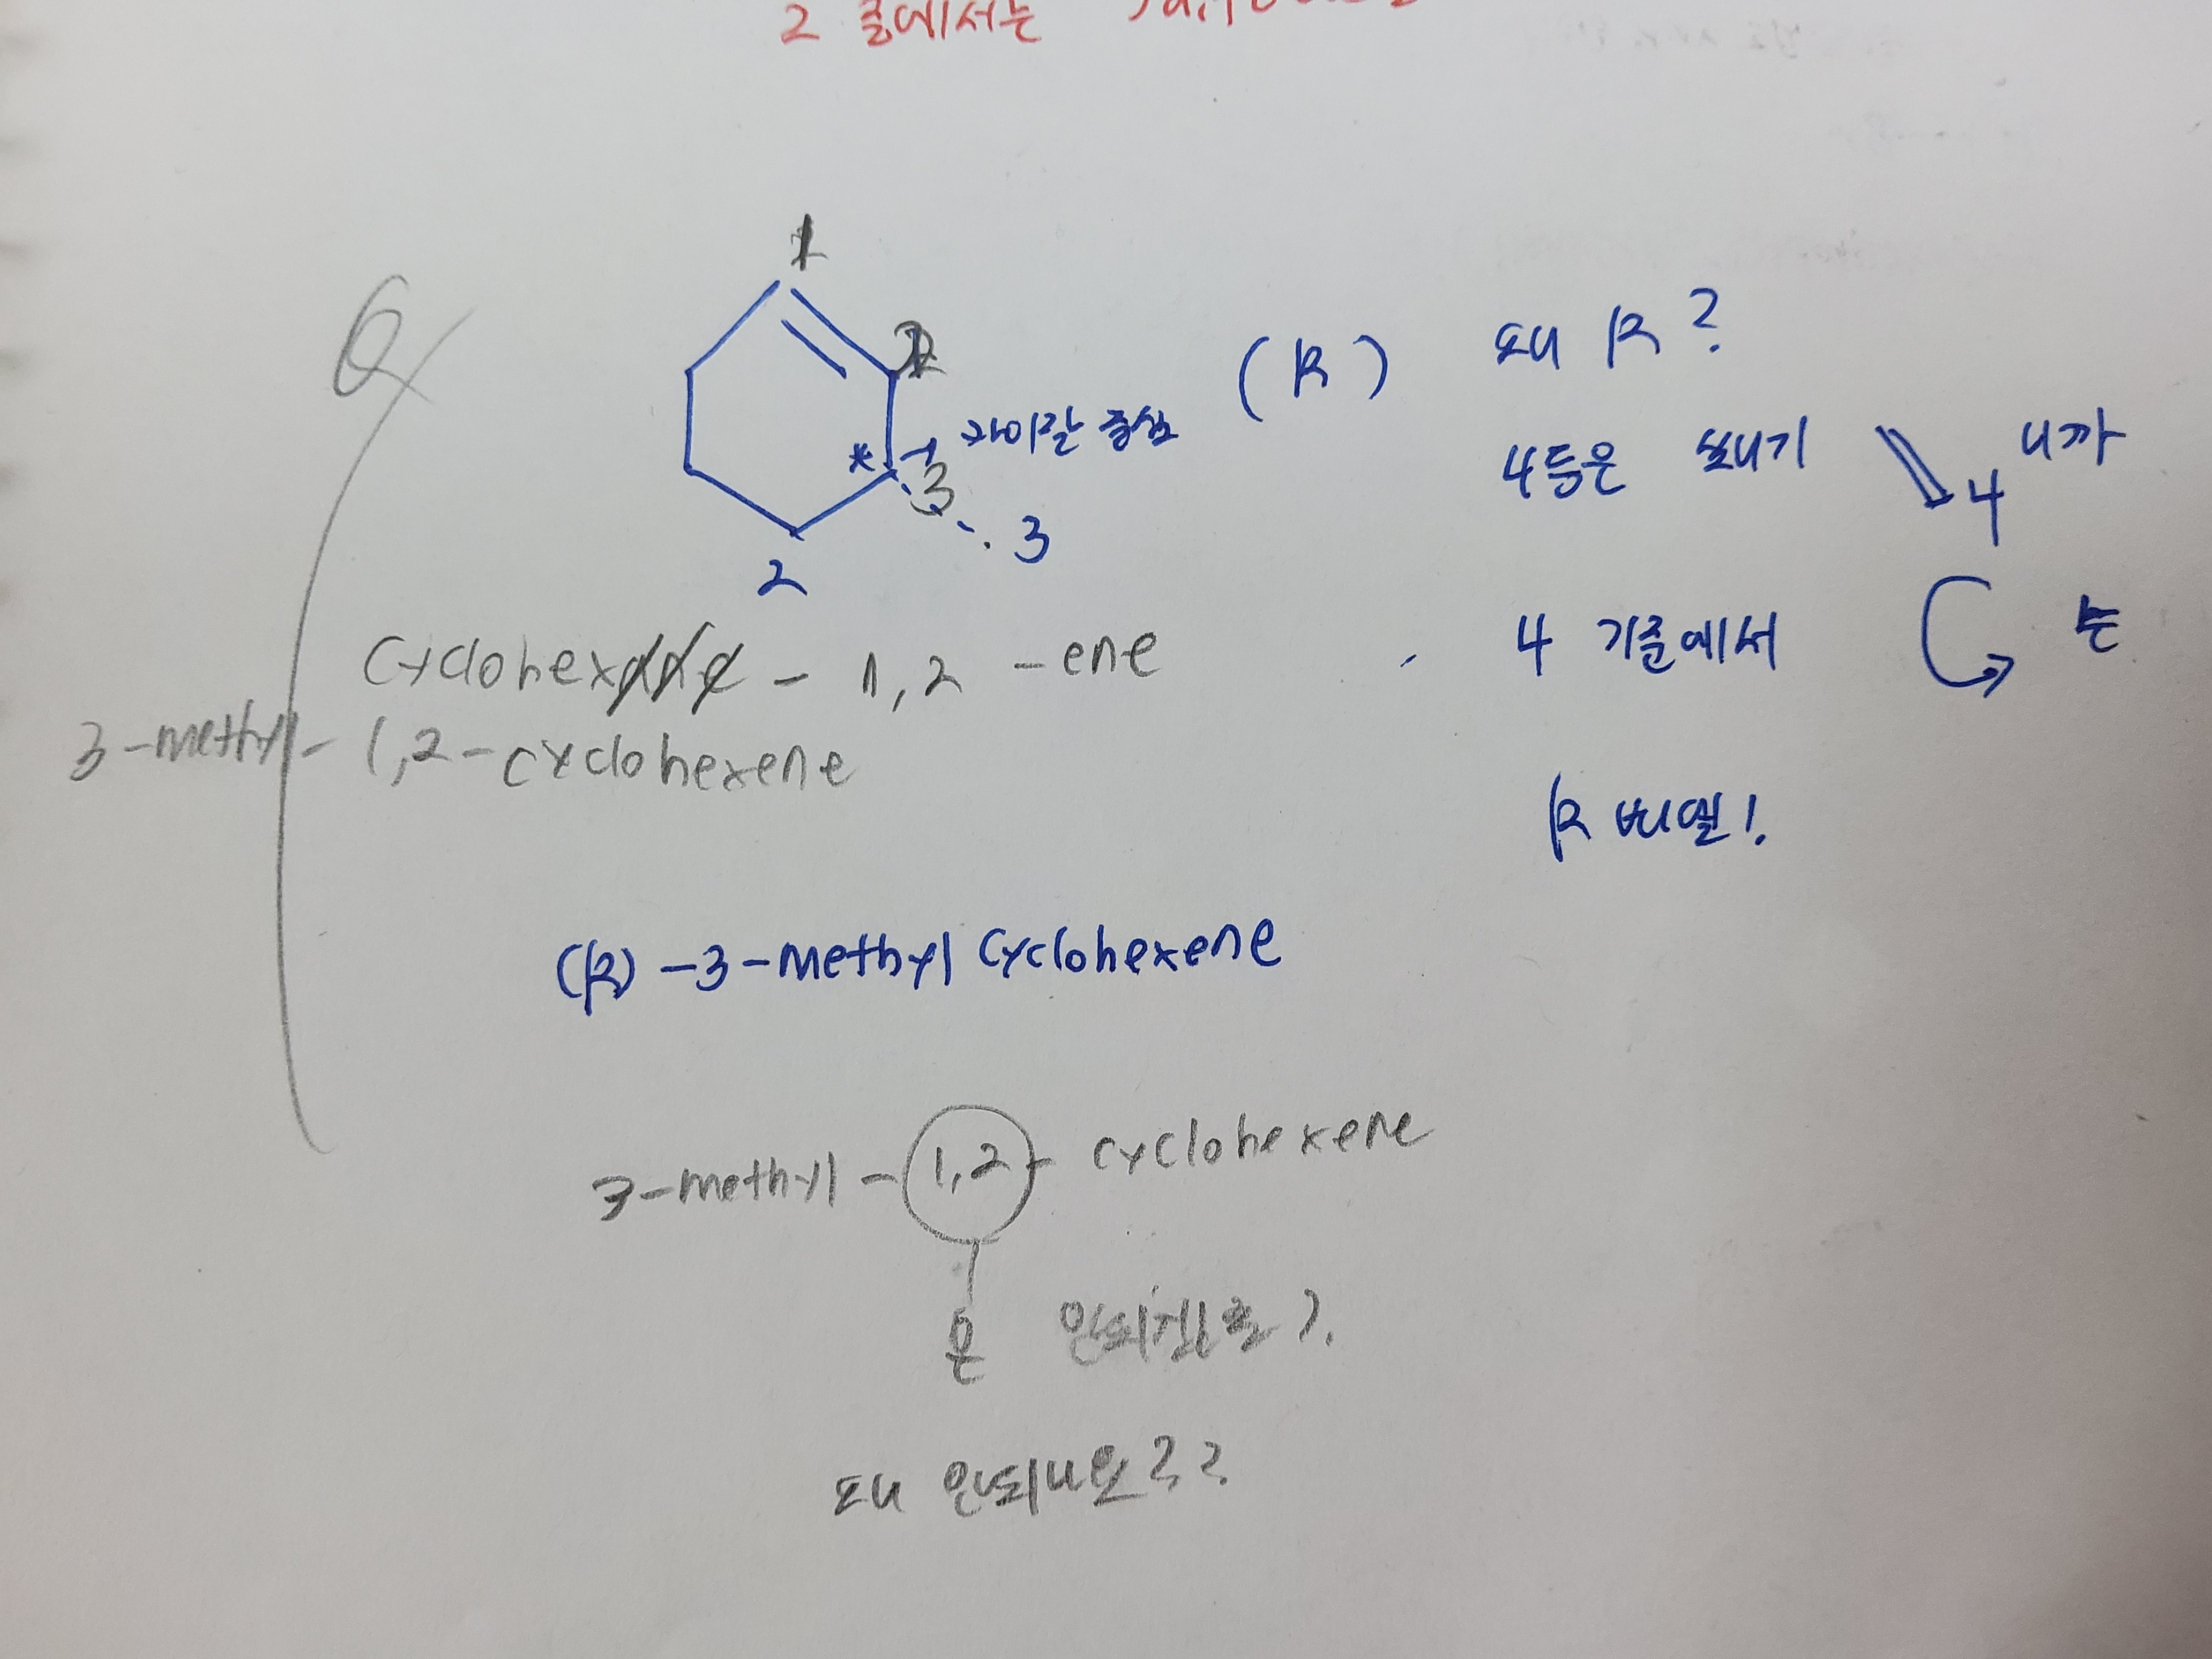 2 줄에서는
Q
1
2
* 카이랄 중심
3
3
2
(R)
왜 R?
4등은 쐐기 4 니까
4 기준에서 는
R 배열!
cyclohexane - 1,2 -ene
3-methyl- 1,2-cyclohexene
(R) -3-methyl cyclohexene
3-methyl - 1,2 - cyclohexene
은 안되겠죠?
왜 안되나요??